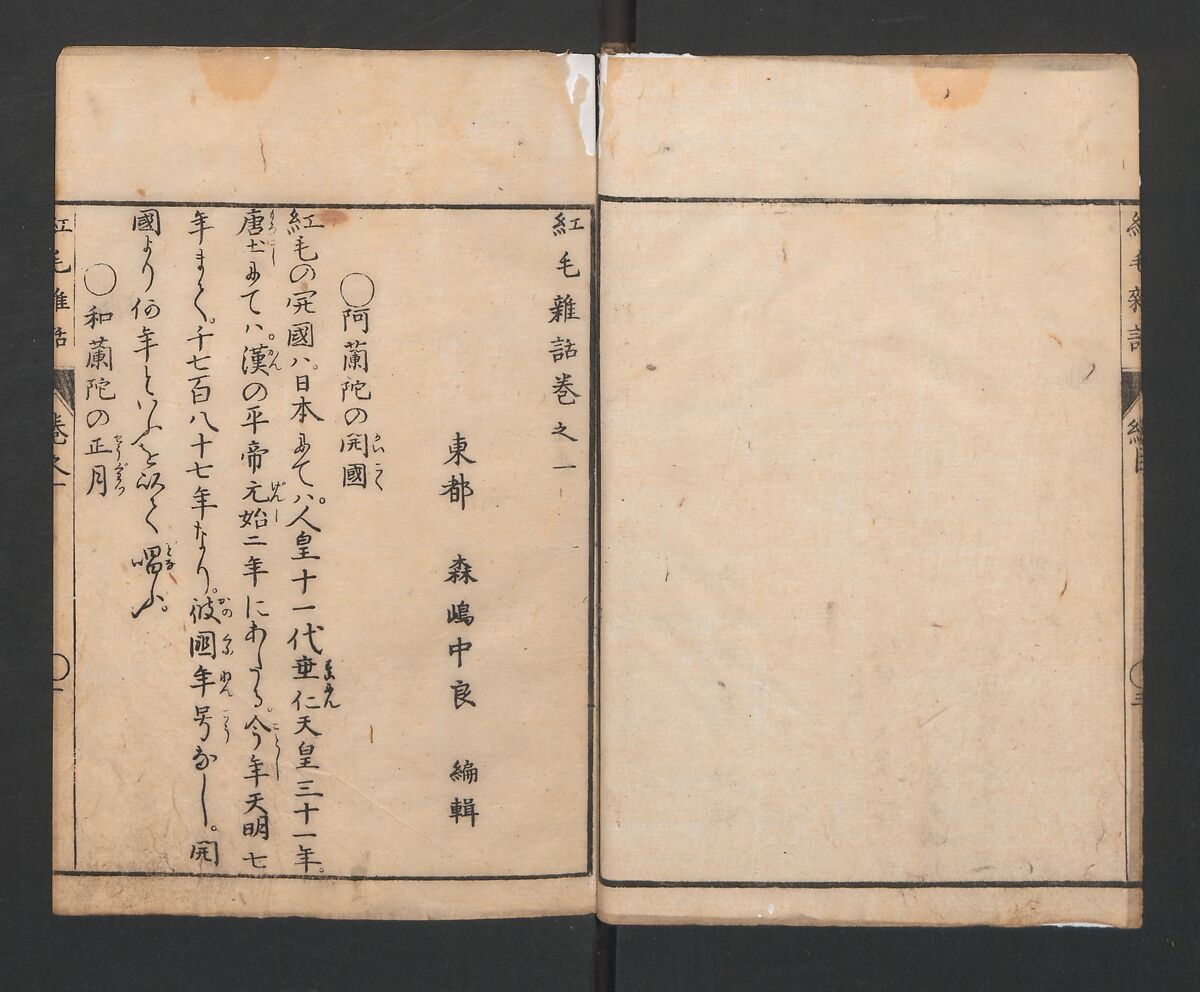 紅毛雜
紅毛雜話巻之一
東都 森嶋中良 編輯
○阿蘭陀の開國
紅毛の開國ハ。日本にてハ。人皇十一代垂仁天皇三十一年。
唐土にてハ。漢の平帝元始二年にあたる。今年天明七
年まで。千七百八十七年なり。彼國年号なし。開
國より何年といふを以て唱ふ。
○和蘭陀の正月
紅毛雜話 巻之一